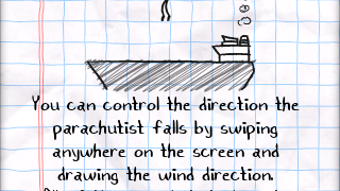 You can control the direction the
parachutist falls by swiping
anywhere on the screen and
drawing the wind direction.